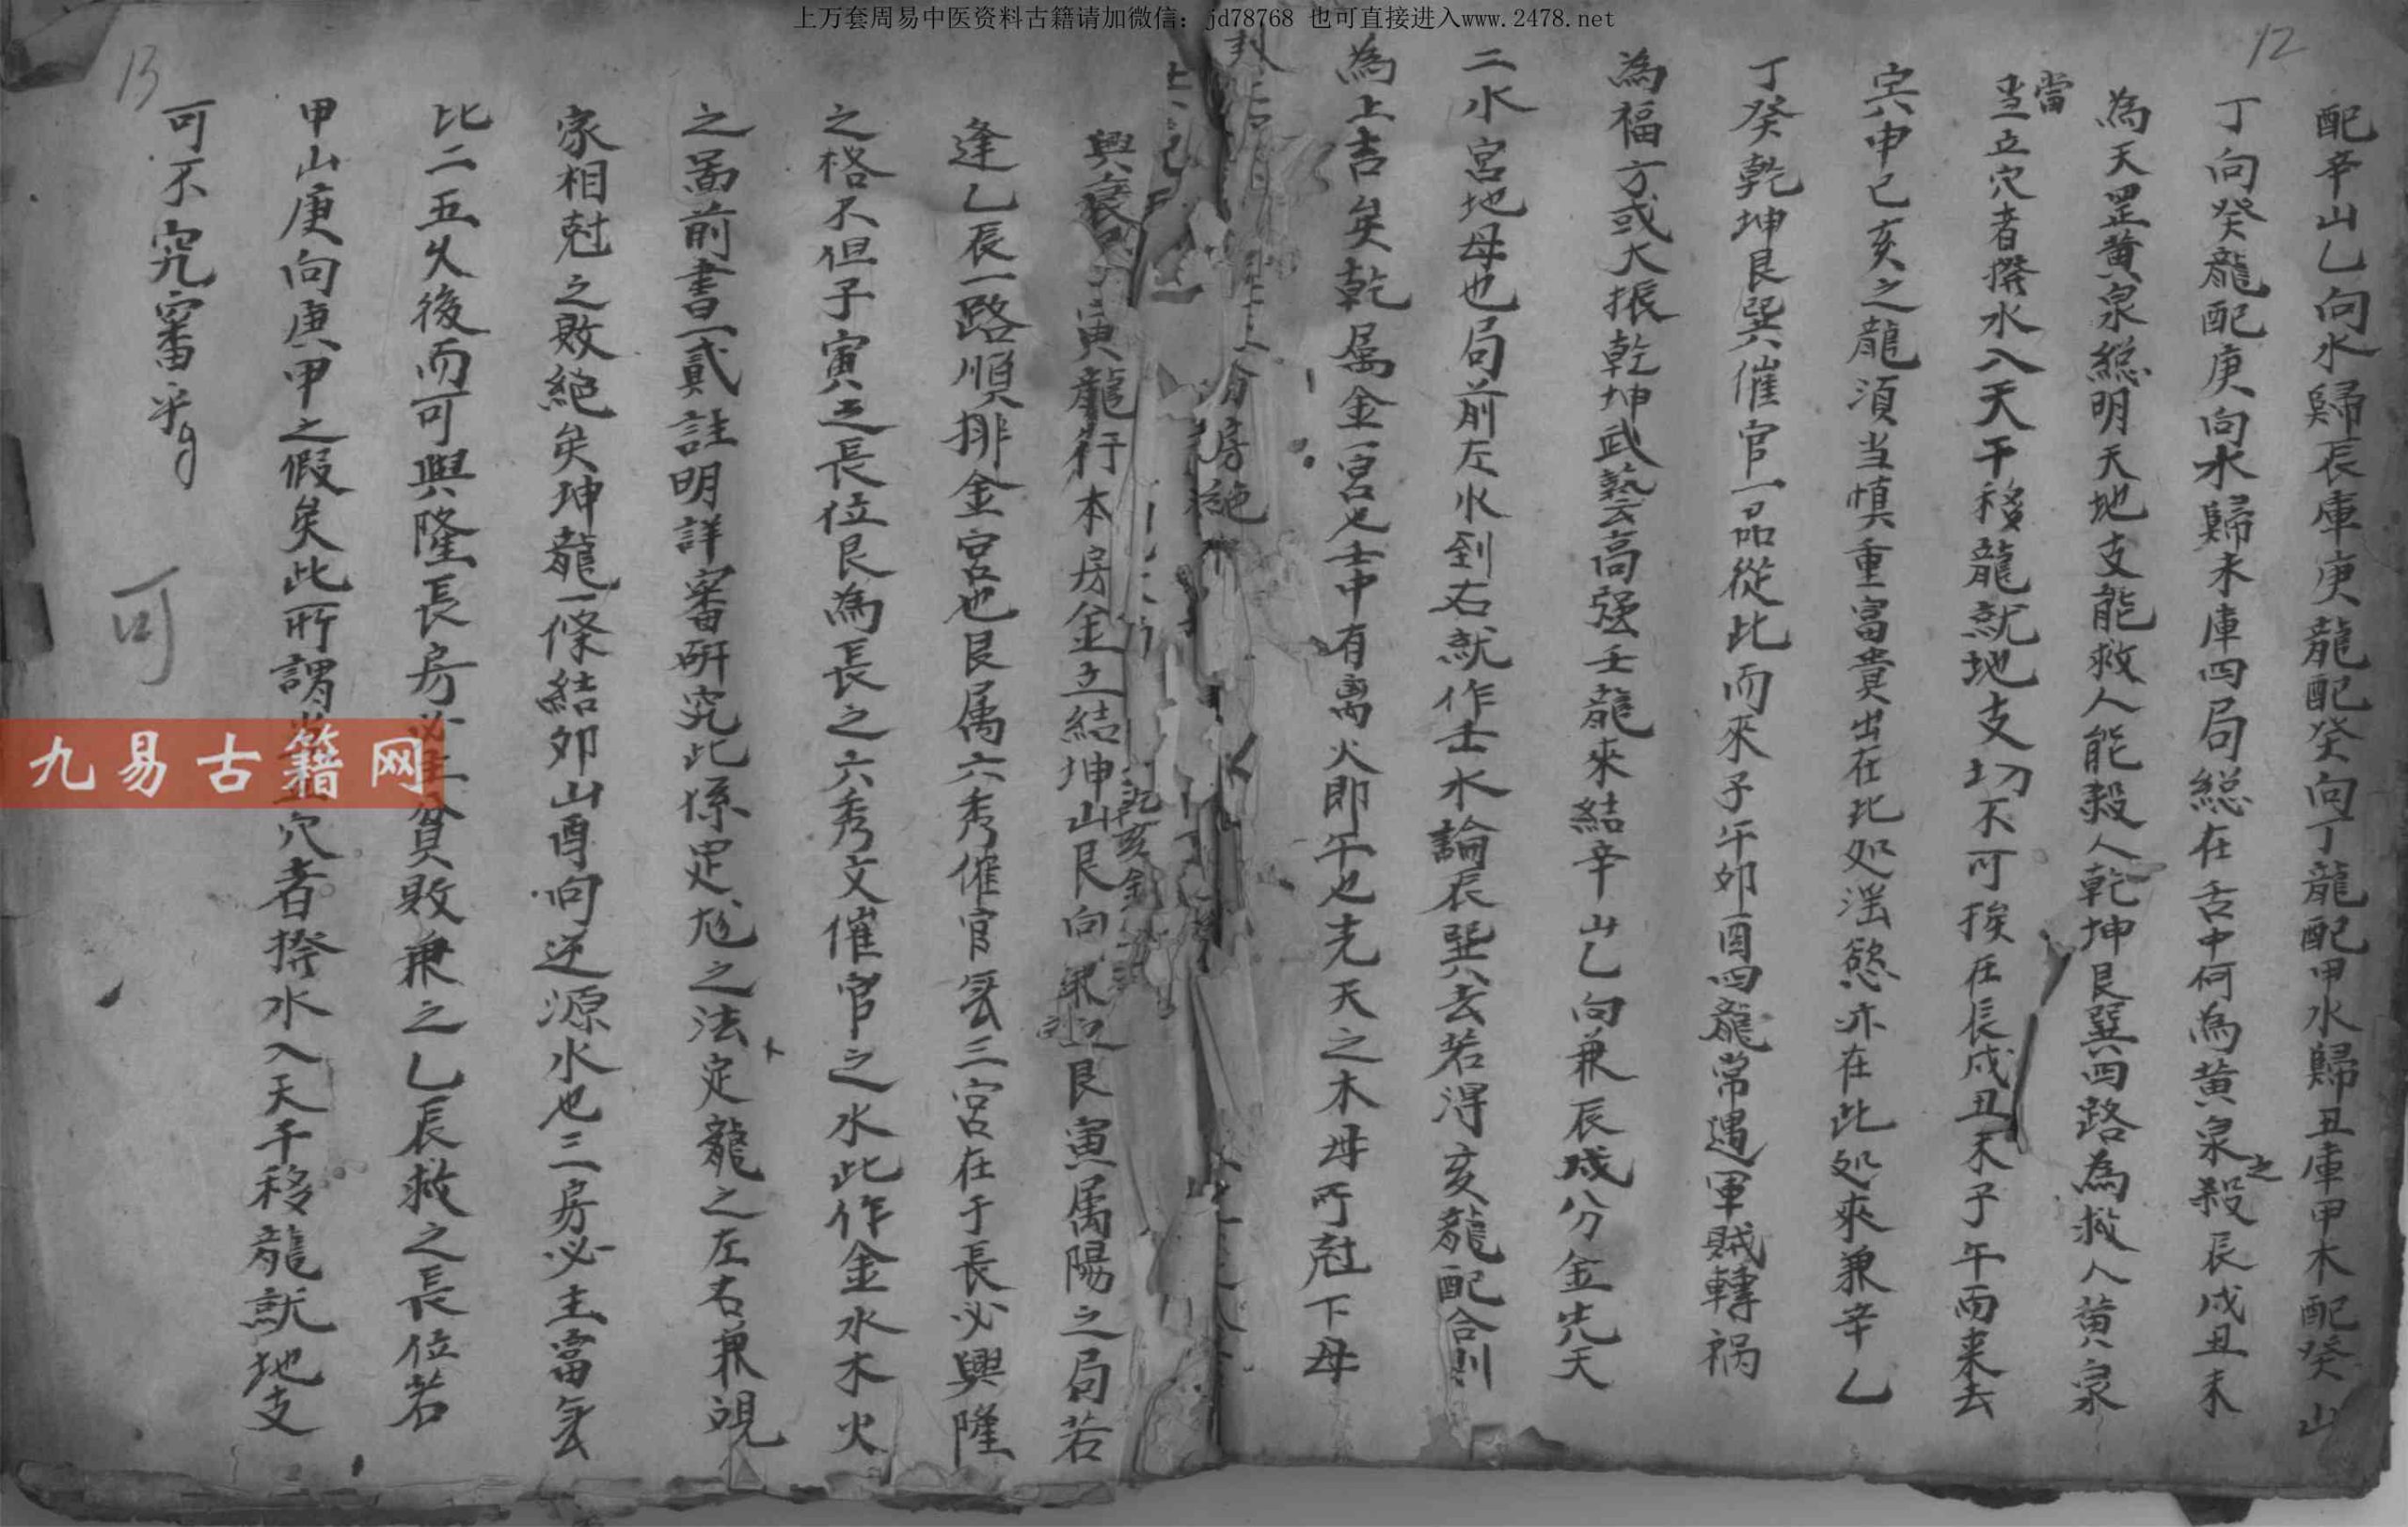 上万套周易中医资料古籍请加微信：jd78768 也可直接进入www.2478.net
12
配辛山乙向水歸辰庫庚龍配癸向丁龍配甲水歸丑庫甲木配癸山
丁向癸龍配庚向水歸未庫四局総在舌中何為黄泉之殺辰戌丑未
為天罡黄泉総明天地支能救人能殺人乾坤艮巽四路為救人黄泉
當立穴者撥水入天干移龍就地支切不可挨在辰戌丑未子午而来去
當
寅申巳亥之龍須当慎重富貴出在此処滛慾亦在此処來兼辛乙
丁癸乾坤艮巽催官一品從此而來子午夘酉四龍常遇軍賊轉祸
為福方或大振乾坤武藝高强壬龍來結辛山乙向兼辰戌分金先天
二水宮地母也局前左水到右就作壬水論辰巽去若得亥龍配合則
為上吉矣乾属金一宮也壬中有离火即午也先天之木母所尅下母
房絶
乾亥
興衰寅龍行本房金立結坤山艮向艮寅属陽之局若
逢乙辰一路順排金宮也艮属六秀催官矣三宮在于長必興隆
之格不但子寅之長位艮為長之六秀文催官之水此作金水木火
之啚前書一貳註明詳審研究此係定尅之法定龍之左右兼覌
家相尅之敗絶矣坤龍一條結夘山酉向逆源水也三房必主富矣
比二五久後而可興隆長房必貧敗兼之乙辰救之長位若
甲山庚向庚甲之假矣此所謂穴者撥水入天干移龍就地支
可不究審乎
可
13
九易古籍网